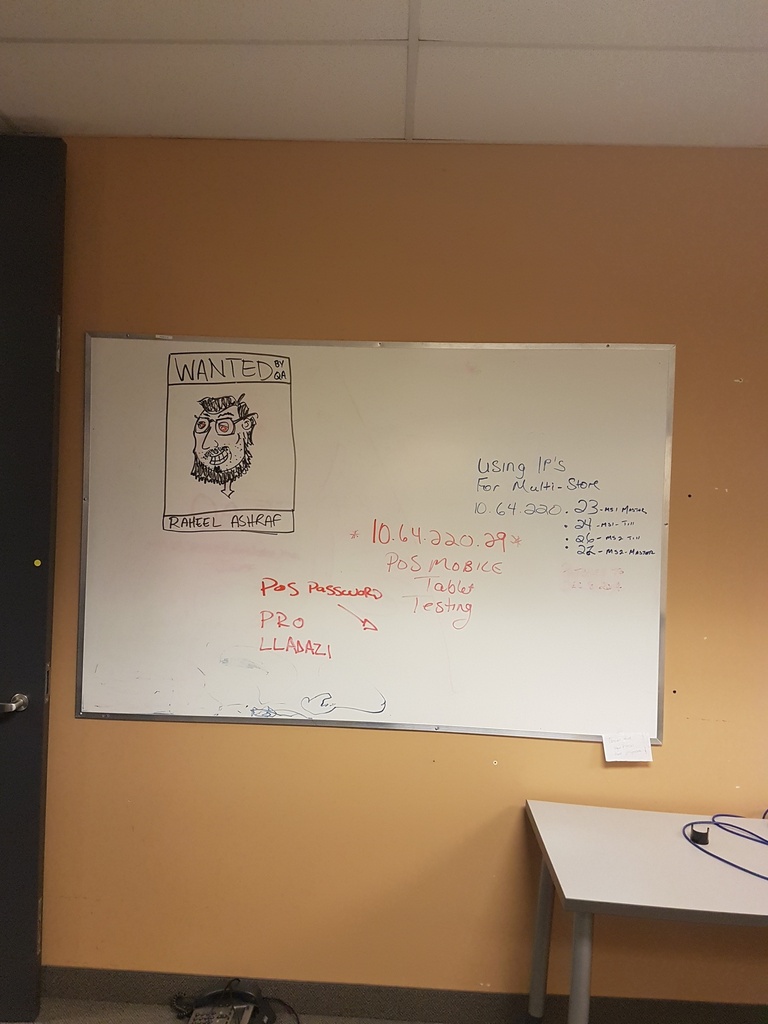 WANTED BY QA
RAHEEL ASHRAF
Using IP's
For Multi-Store
10.64.220.23-MS1 Master
.24-MS1-Till
.26-MS2 Till
.22-MS2-Master
* 10.64.220.29 *
POS MOBILE
Tablet
Testing
POS PASSWORD
PRO
LLADAZI